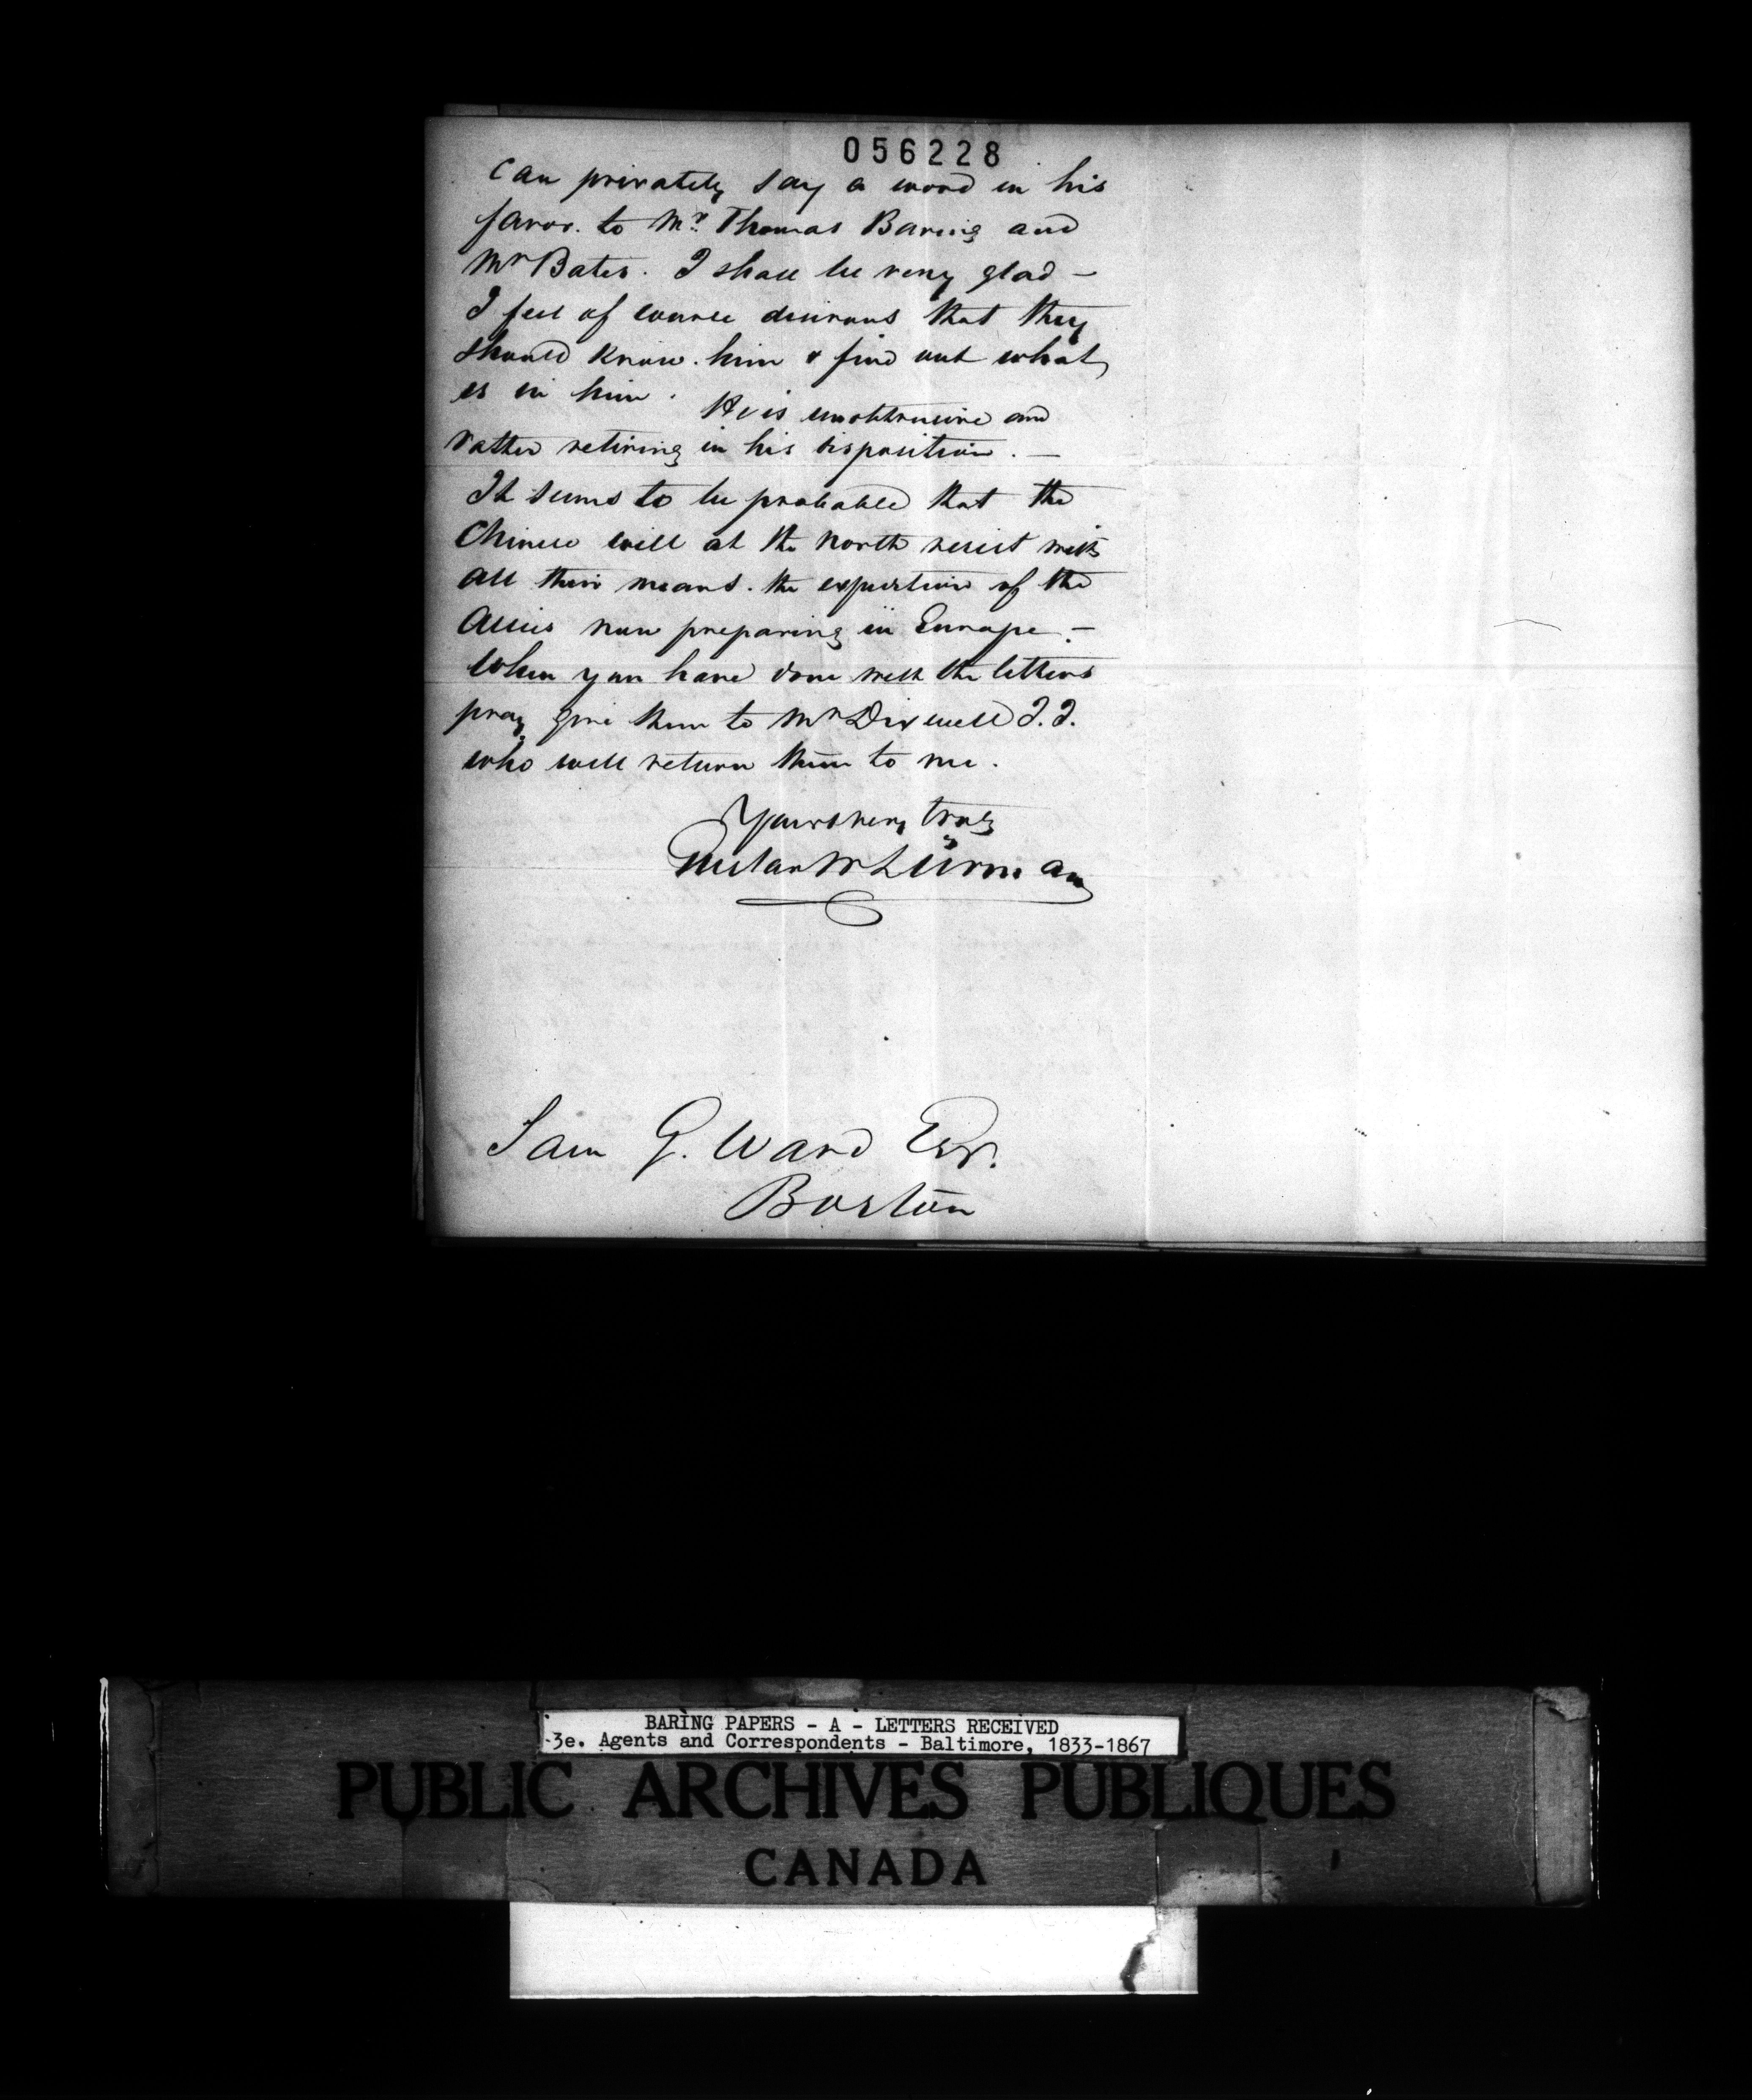 056228
can privately say a word in his
favor. to Mr. Thomas Baring and
Mr Bates. I shall be very glad —
I feel of course desirous that they
should know him & find out what
is in him. He is unobtrusive and
rather retiring in his disposition. —
It seems to be probable that the
Chinese will at the north resist with
all their means. the expedition of the
Allies now preparing in Europe. —
When you have done with the letters
pray give them to Mr Dixwell
who will return them to me.
Yours very truly
Gustav W Lürman
Sam G. Ward Esq.
Boston
BARING PAPERS - A - LETTERS RECEIVED
3e. Agents and Correspondents - Baltimore, 1833-1867
PUBLIC ARCHIVES PUBLIQUES
CANADA